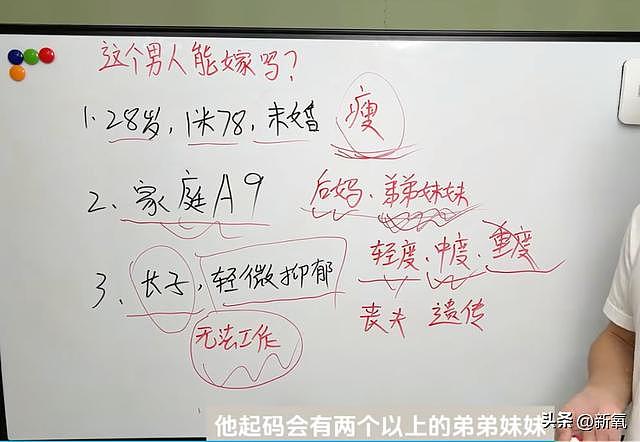 这个男人能嫁吗?
1.28岁,1米78,未婚 瘦
2、家庭A9 后妈、弟弟妹妹
3、长子,轻微抑郁 轻度、中度、重度
无法工作 丧夫 遗传
他起码会有两个以上的弟弟妹妹
头条 @新氧